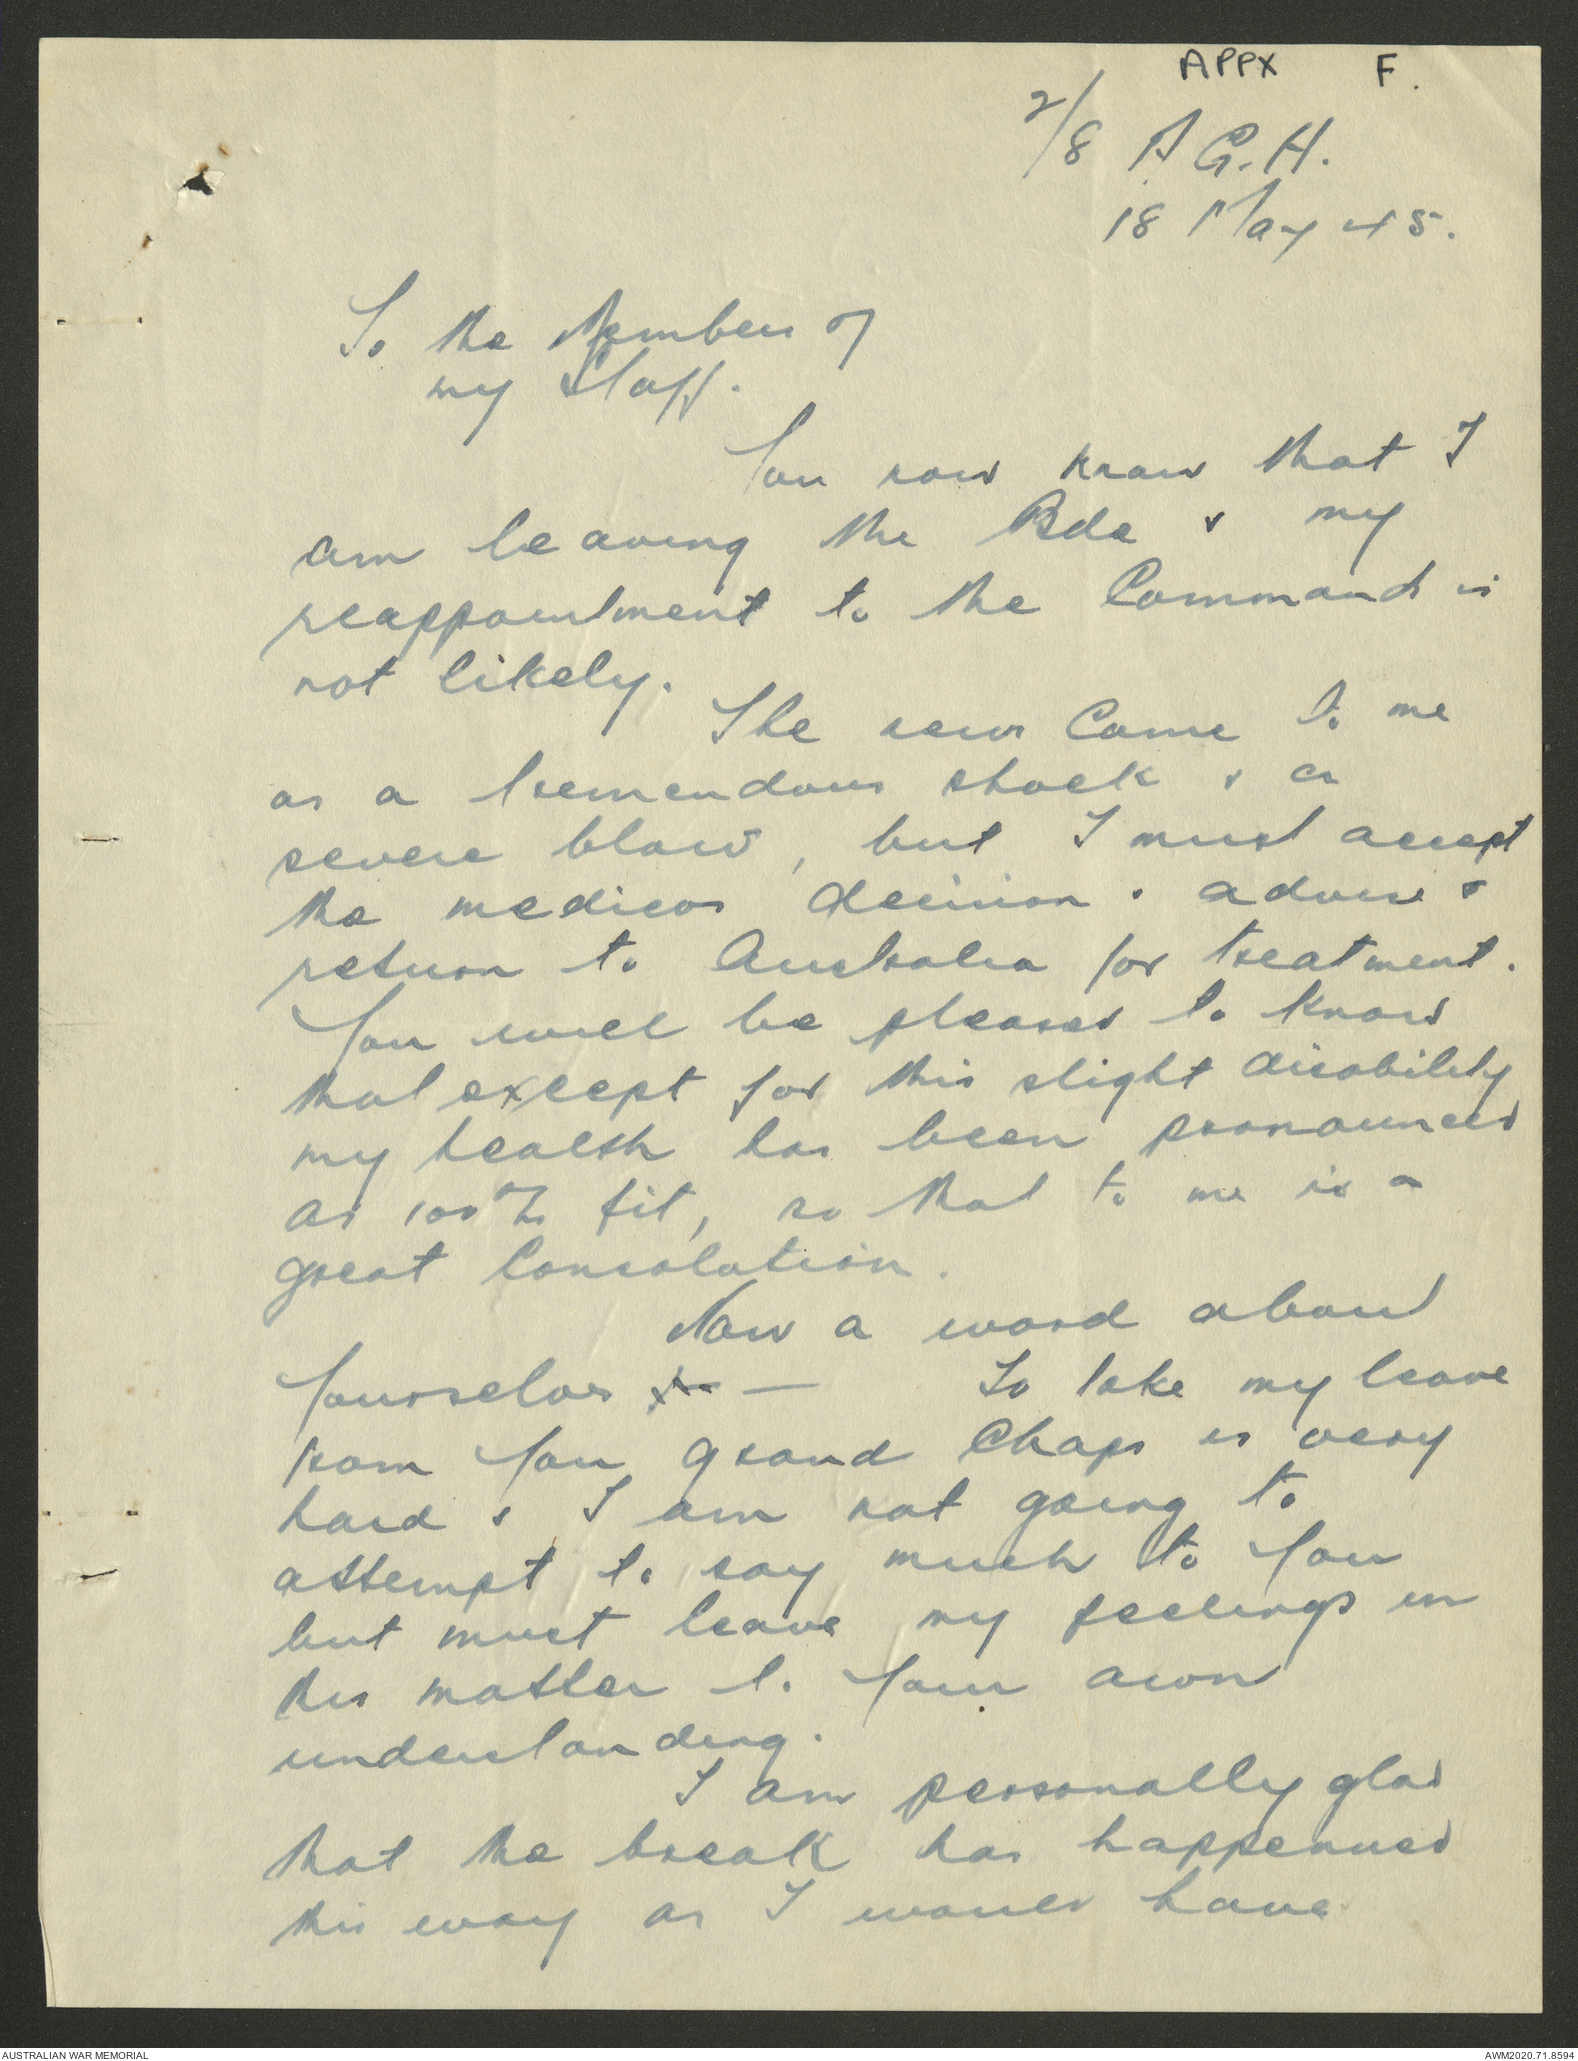 APPX F.
2/8 A.G.H.
18 May 45.
To the Members of
my Staff.
You now know that I
am leaving the Bde & my
reappointment to the Command is
not likely.
The news came to me
as a tremendous shock & a
severe blow, but I must accept
the medicos decision & advise &
return to Australia for treatment.
You will be pleased to know
that except for this slight disability
my health has been pronounced
as 100% fit, so that to me is a
great consolation.
Now a word about
Yourselves —
To take my leave
from you grand chaps is very
hard & I am not going to
attempt to say much to you
but must leave my feelings in
this matter to your own
understanding.
I am personally glad
that the break has happenned
this way as I would have
AUSTRALIAN WAR MEMORIAL
AWM2020.71.8594